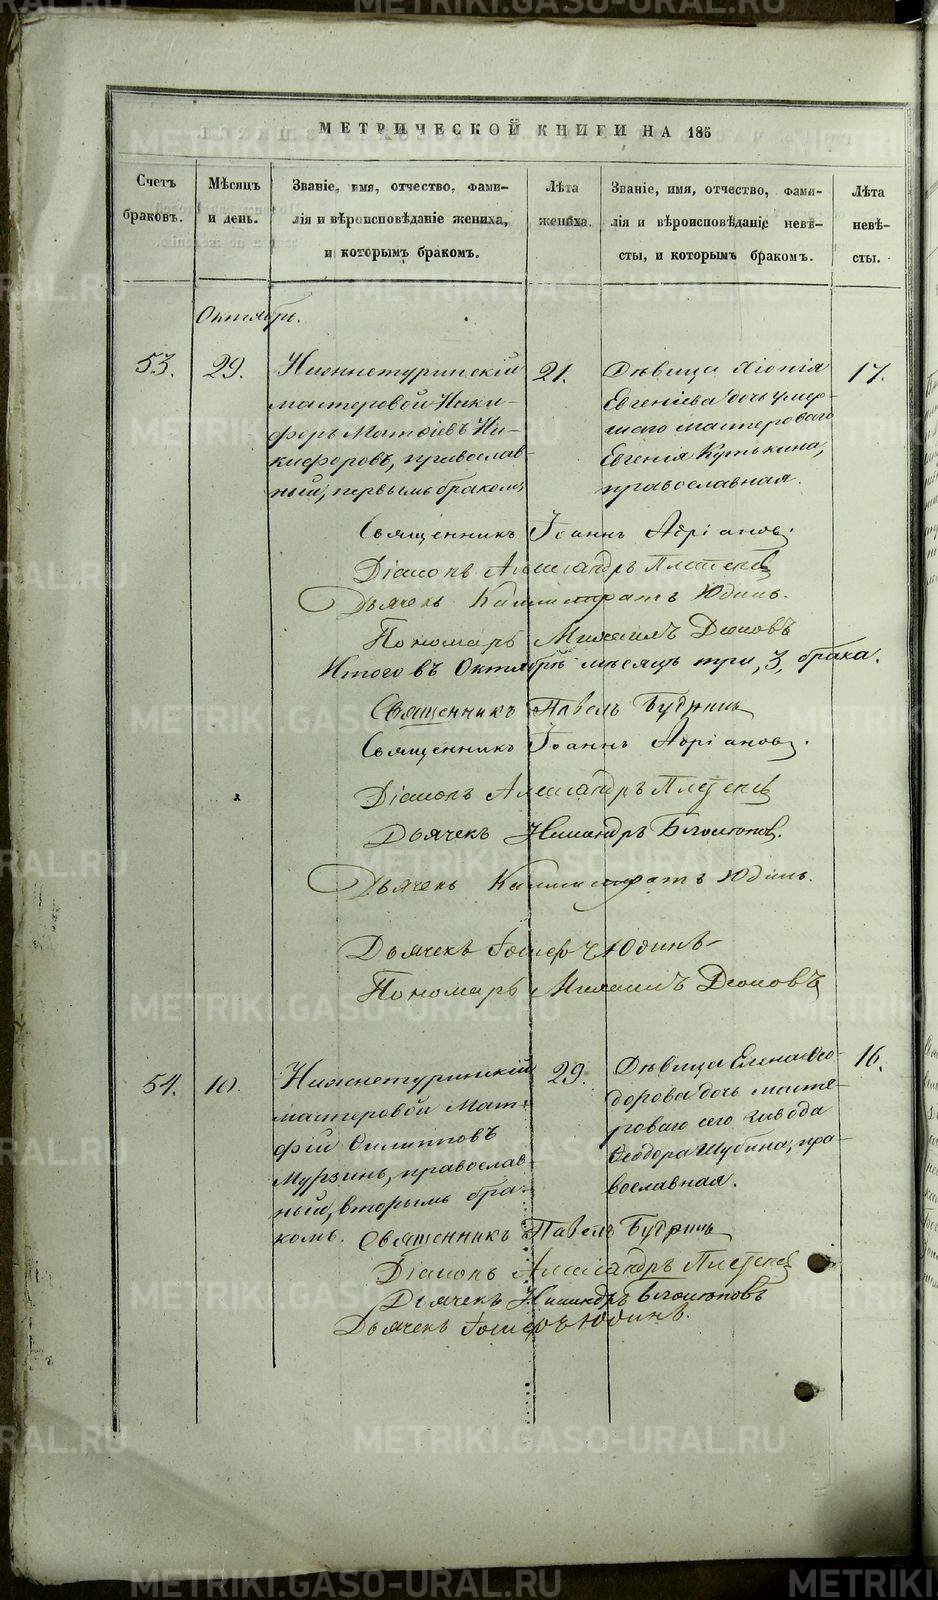 МЕТРИЧЕСКОЙ КНИГИ НА 185
Счетъ браковъ.
Мѣсяцъ и день.
Званіе, имя, отчество, фами-
лія и вѣроисповѣданіе жениха,
и которымъ бракомъ.
Лѣта жениха.
Званіе, имя, отчество, фами-
лія и вѣроисповѣданіе невѣ-
сты, и которымъ бракомъ.
Лѣта невѣ-
сты.
Октябрь.
53.
29.
Нижнетуринскій
мастеровой Ники-
форъ Матѳіевъ Ни-
кифоровъ, православ-
ный, первымъ бракомъ
21.
Дѣвица
Евгеніева дочь умер-
шаго мастероваго
Евгенія Кутькина,
православная.
17.
Священникъ Іоаннъ Адріановъ.
Діаконъ Александръ Плетневъ
Дьячекъ Каллистратъ Юдинъ.
Пономарь Михаилъ Деконовъ
Итого въ Октябрѣ мѣсяцѣ три, 3, брака.
Священникъ Павелъ Будринъ
Священникъ Іоаннъ Адріановъ.
Діаконъ Александръ Плетневъ
Дьячекъ Никандръ
Дьячекъ Каллистратъ Юдинъ.
Дьячекъ Іосифъ Юдинъ
Пономарь Михаилъ
54.
10.
Нижнетуринскій
мастеровой Мат-
фій Филипповъ
Мурзинъ, православ-
ный, вторымъ бра-
комъ.
29.
Дѣвица Елена Ѳео-
дорова дочь масте-
роваго сего завода
Ѳеодора Шубина, пра-
вославная.
16.
Священникъ Павелъ Будринъ
Діаконъ Александръ Плетневъ
Дьячекъ Никандръ
Дьячекъ Іосифъ Юдинъ.
METRIKI.GASO-URAL.RU